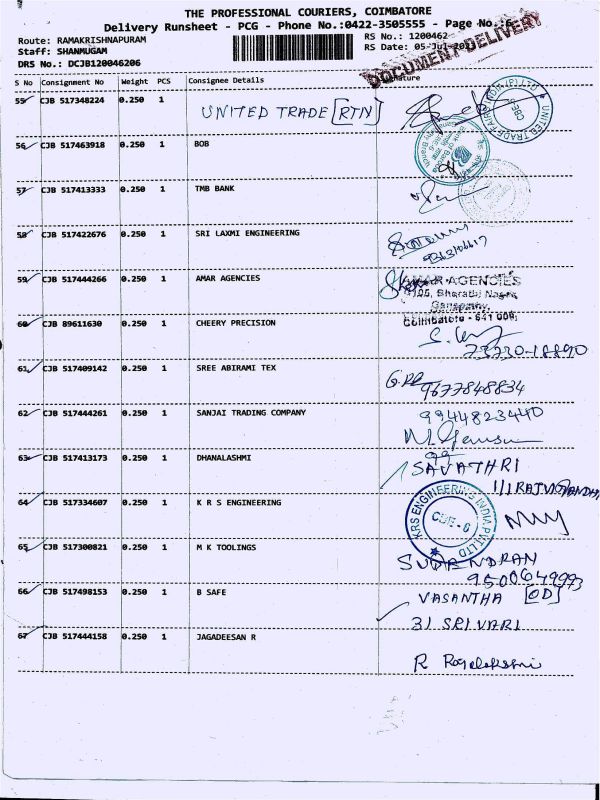 THE PROFESSIONAL COURIERS, COIMBATORE
Delivery Runsheet - PCG - Phone No.:0422-3505555 - Page No.:6
Route: RAMAKRISHNAPURAM
RS No.: 1200462
Staff: SHANMUGAM
RS Date: 05-Jul-2023
DRS No.: DCJB120046206
DOCUMENT DELIVERY
S No Consignment No Weight PCS Consignee Details Signature
55 CJB 517348224 0.250 1 UNITED TRADE [RTN]
56 CJB 517463918 0.250 1 BOB
57 CJB 517413333 0.250 1 TMB BANK
58 CJB 517422676 0.250 1 SRI LAXMI ENGINEERING
59 CJB 517444266 0.250 1 AMAR AGENCIES
AMAR AGENCIES
Bharathi Nagar,
Ganapathy,
Coimbatore - 641 006.
60 CJB 89611630 0.250 1 CHEERY PRECISION
73730-18890
61 CJB 517409142 0.250 1 SREE ABIRAMI TEX
9677848834
62 CJB 517444261 0.250 1 SANJAI TRADING COMPANY
9944823440
63 CJB 517413173 0.250 1 DHANALASHMI
SAVATHRI
64 CJB 517334607 0.250 1 K R S ENGINEERING
KRS ENGINEERING INDIA PVT LTD
CBE-6
65 CJB 517300821 0.250 1 M K TOOLINGS
66 CJB 517498153 0.250 1 B SAFE
VASANTHA [OD]
31 SRIVARI
67 CJB 517444158 0.250 1 JAGADEESAN R